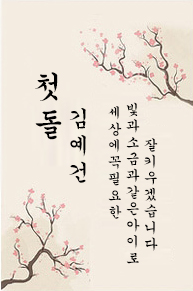 첫돌
김예건
세상에꼭필요한
빛과소금과같은아이로
잘키우겠습니다